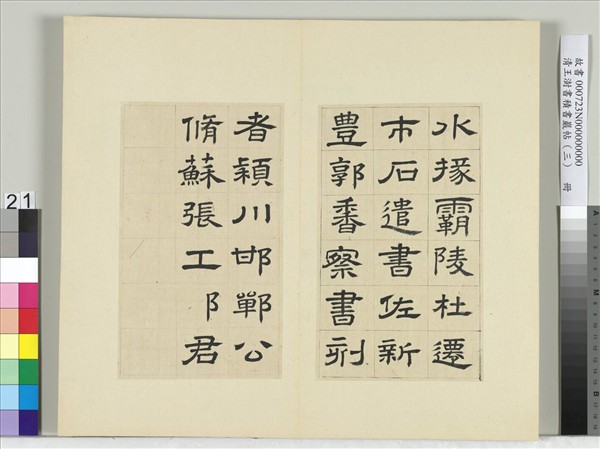 水掾霸陵杜遷
市石遣書佐新
豊郭香察書刻
者穎川邯鄲公
脩蘇張工阝君
故書 000723N000000000
清王澍書積書巖帖(三) 冊
21
A
M
B